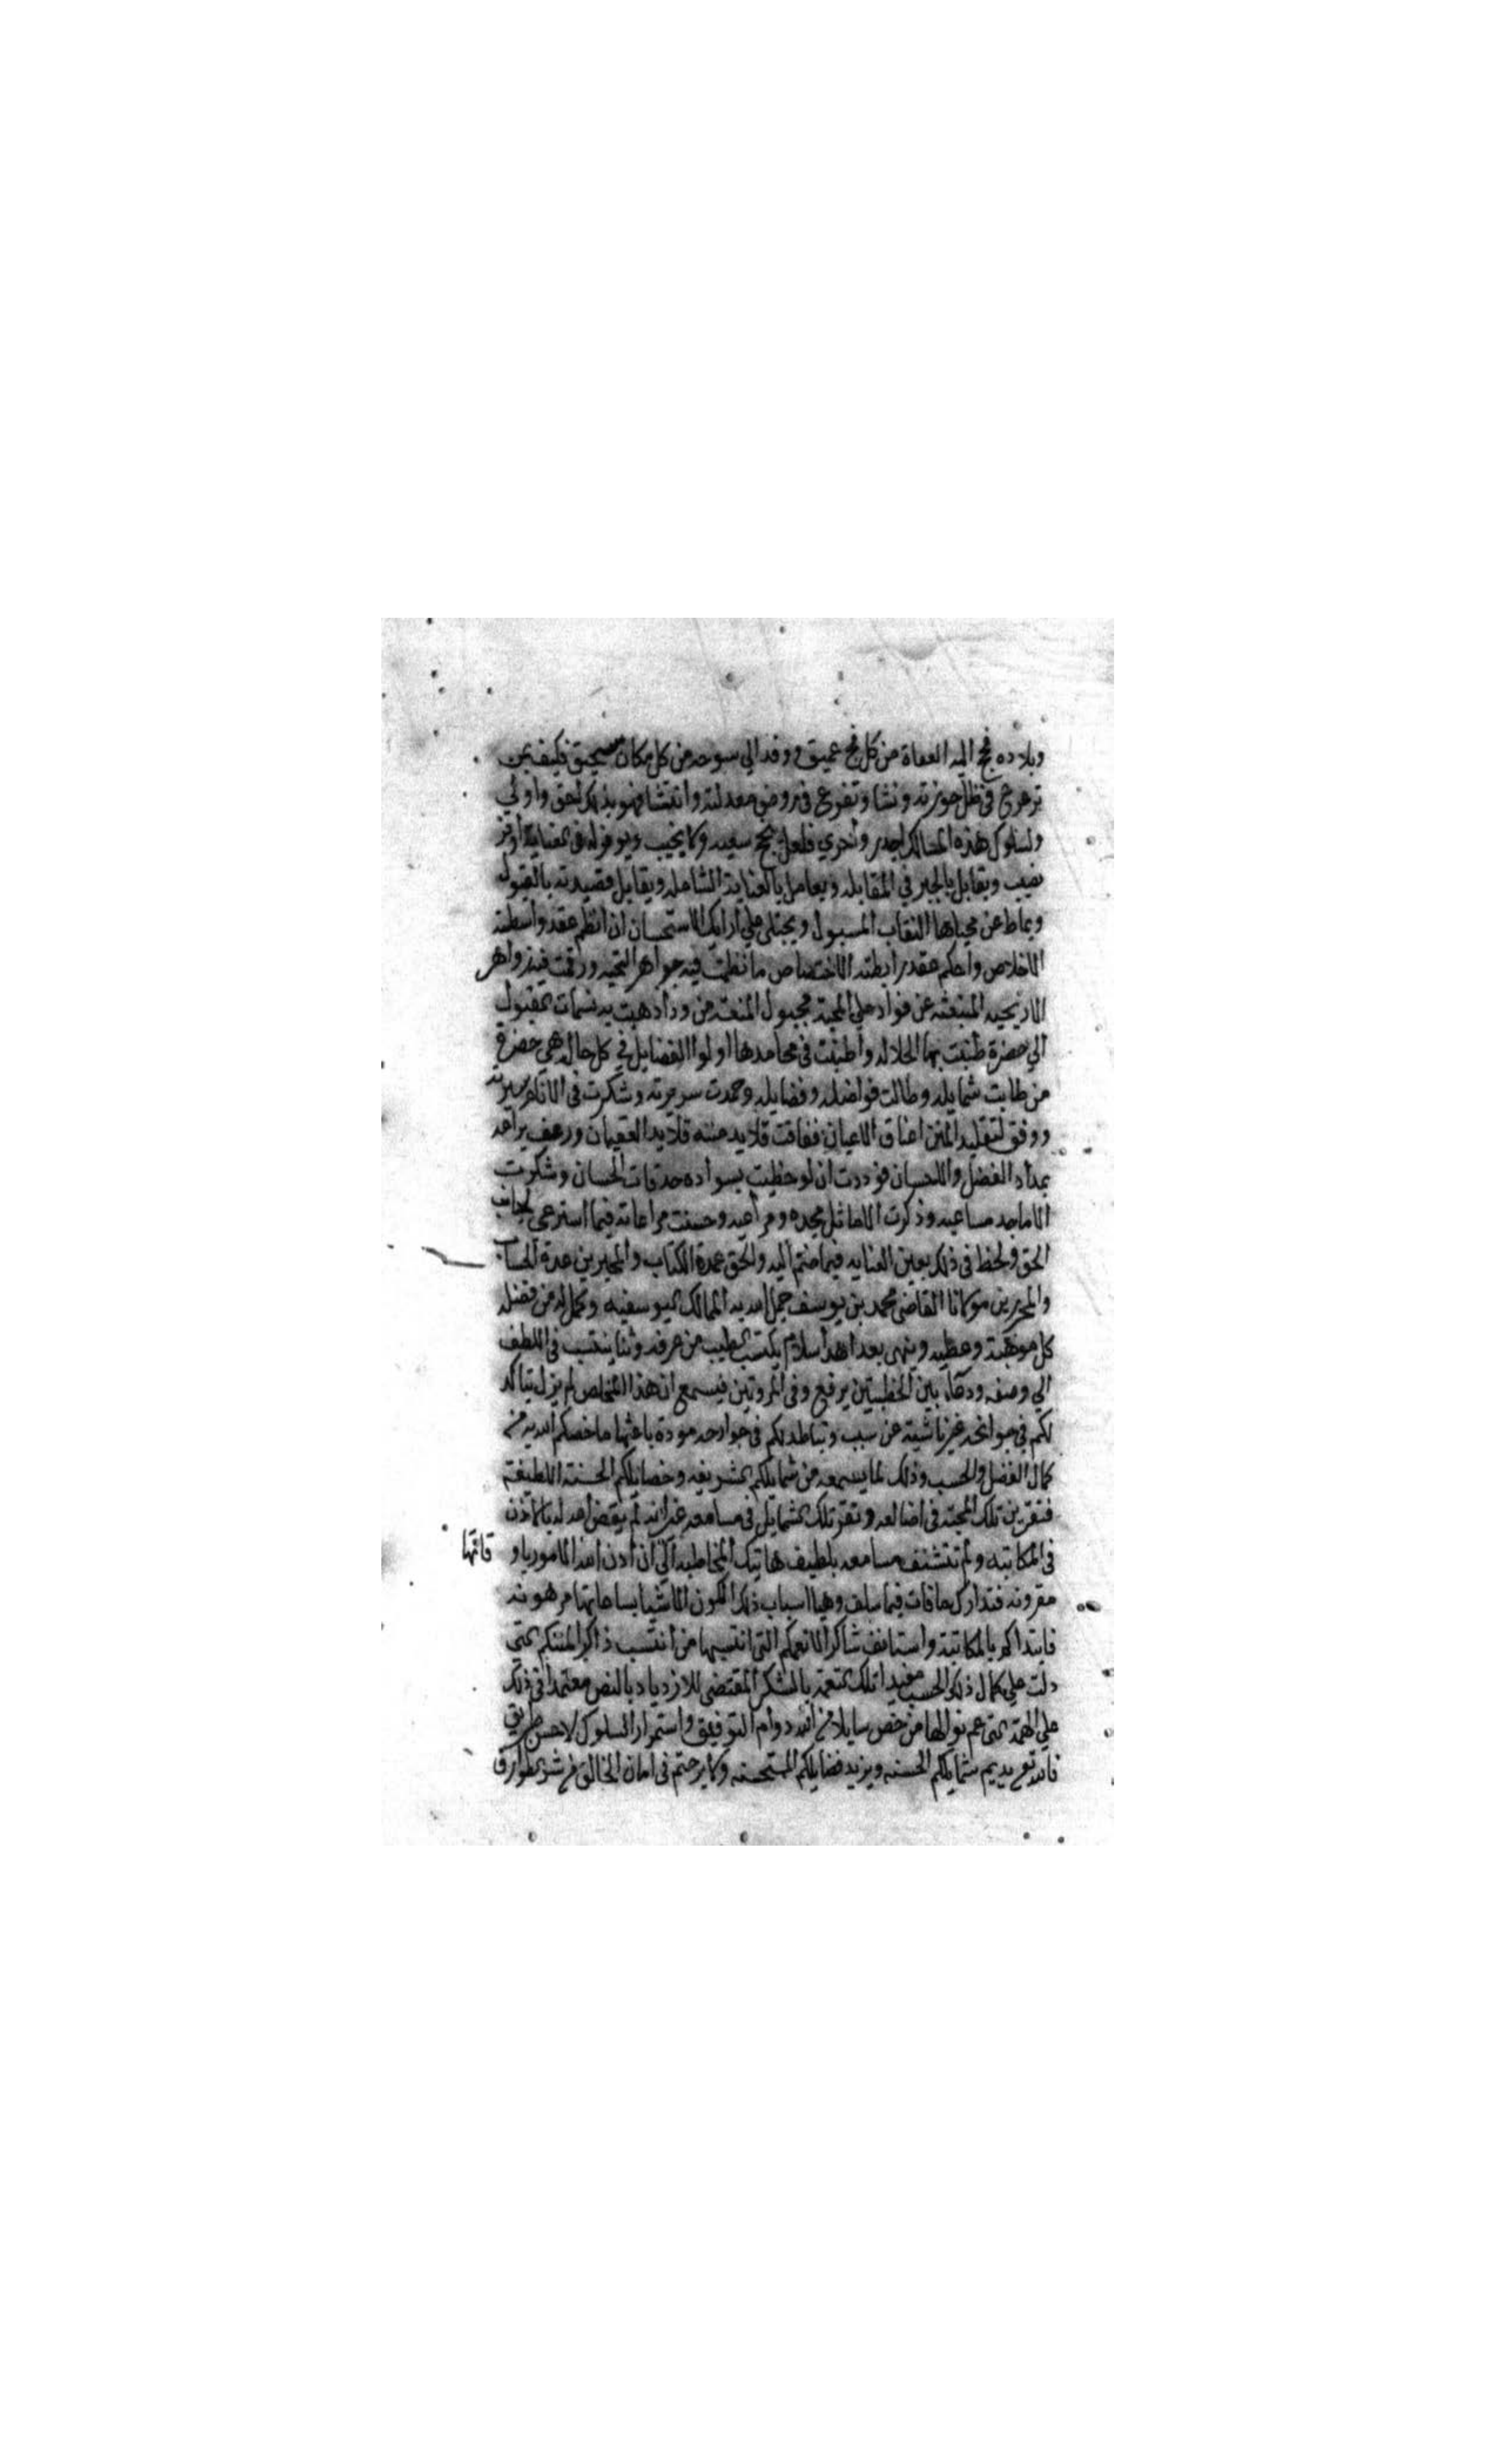 وبلاده فج اليه العفاة من كل فج عميق ووفد الي سوحه من كل مكان سحيق فكيف بمن
ترعرع في ظل حوزته ونشا وتفرع في روض معدلته وانتشا فهو بذلك احق واولي
ولسلوك هذه المسالك اجدر واحري فلعل ينجح سعيه ولا يخيب ويوفر له في العناية اوفر
نصيب ويقابل بالجبر في المقابله ويعامل بالعناية الشامله ويقابل قصيدته بالقبول
ويماط عن محياها النقاب المسبول ويجتلي علي ارايك الاستحسان ان انظم عقد واسطته
الاخلاص واحكم عقد رابطته الاختصاص ما نظمت فيه جواهر التحيه ورقمت فيه زواهر
الاريحيه المنبعثه عن فواد علي المحبة مجبول المنعته من وداد هبت به نسمات القبول
الي حضرة طنبت بها الجلاله واطنبت في محامدها اولوا الفضايل في كل حاله هي حضرة
من طابت شمايله وطالت فواضله وفضايله وحمدت سريرته وشكرت في الانام سيرته
ووفق لتقليد المنن اعناق الاعيان ففاقت قلايد مننه قلايد العقيان ورعف يراعه
بمداد الفضل والاحسان فوددت ان لو حظيت بسواده حدقات الحسان وشكرت
الاماجد مساعيه وذكرت الاماثل مجده ومراعيه وحسنت مراعاته فيما استرعي لجانب
الحق ولحظ في ذلك بعين العنايه فيما ضم اليه والحق عمدة الكتاب والمحبرين عدة الحساب
والمحررين مولانا القاضي محمد بن يوسف جمل الله به الممالك اليوسفيه وكمل له من فضله
كل موهبة وعطيه وينهي بعد اهدا سلام يكتسب الطيب من عرفه وثنا ينتسب في اللطف
الي وصفه ودعاء بين الخطبتين يرفع وفي المروتين فيسمع ان هذا المخلص لم يزل تتاكد
لكم في جوانحه غير ناشية عن سبب وتباطد لكم في جوارحه مودة باعثها ما خصكم الله به من
كمال الفضل والحسب وذلك لما يسمعه من شمايلكم الشريفه وخصايلكم الحسنة اللطيفة
فتقر بن تلك المحبة في اضالعه وتقر تلك الشمايل في مسامعه غير انه لم يقض له بالاذن
في المكاتبه ولم تتشنف مسامعه بلطيف هاتيك المخاطبه الي ان اذن الله الامور باو
قاتها
مقرونه فتدارك ما فات فيما سلف وهيا اسباب ذلك لكون الاشيا بساعاتها مرهونه
فابتداكم بالمكاتبة واستانف شاكرا لانعمكم التي انتسبها من انتسب ذاكرا لمننكم التي
دلت علي كمال ذلك الحسب مفيدا تلك النعمة بالشكر المقتضي للازدياد بالنص معتمدا في ذلك
علي الهمة التي عم نوالها من خص سايلا من الله دوام التوفيق واستمرار السلوك لاحسن طريق
فالله تع يديم شمايلكم الحسنه ويزيد فضايلكم المستحسنه ولا برحتم في امان الخالق من شر طوارق